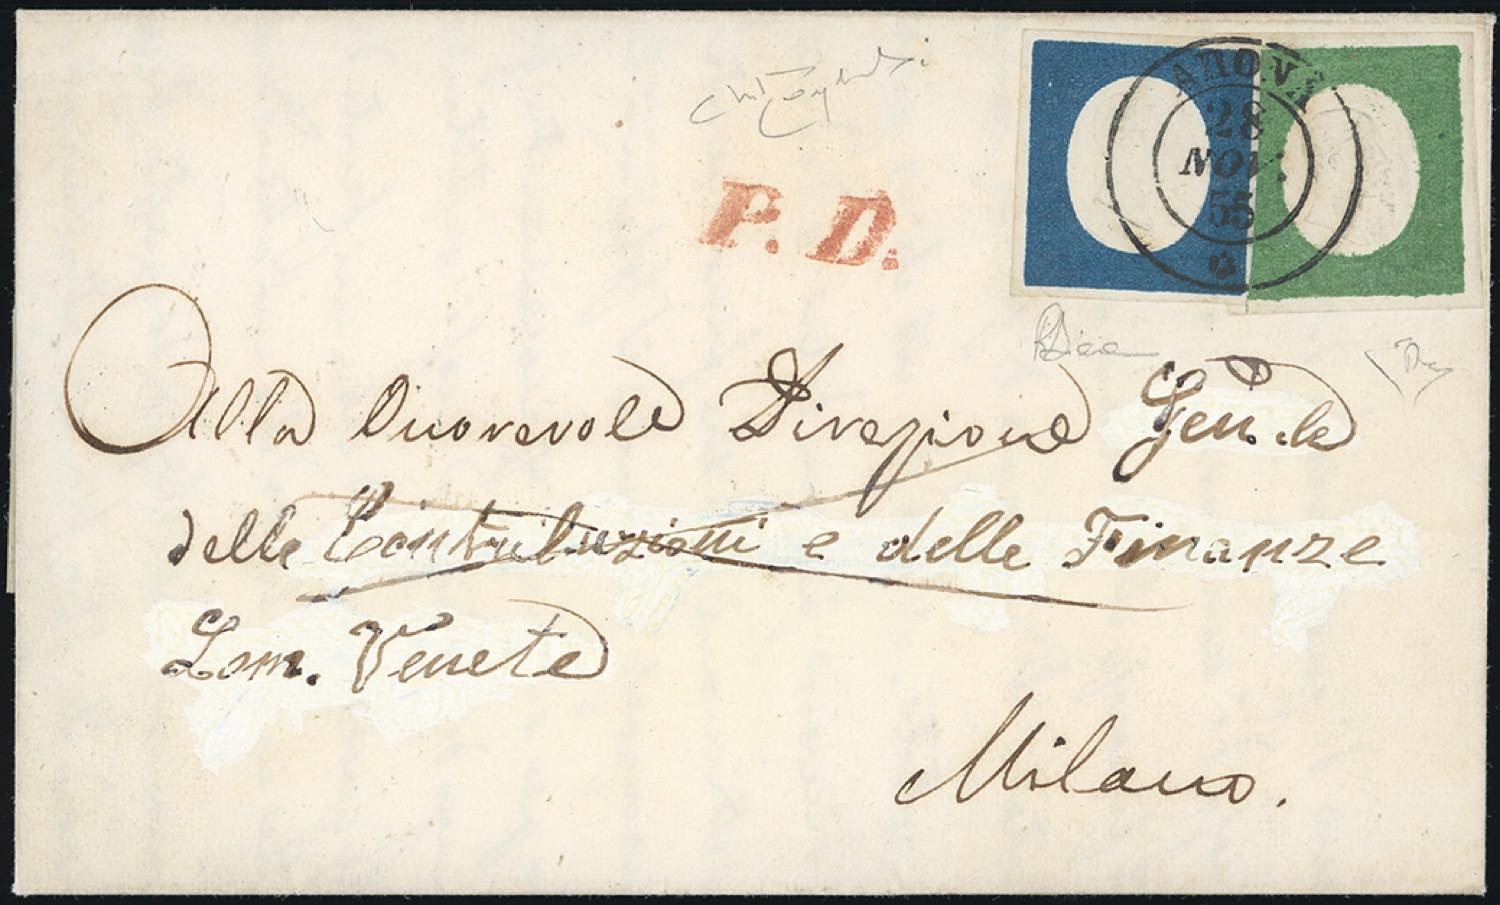 ARONA
28
NOV.
55
P. D.
Alla Onorevole Direzione Gen.le
delle Contribuzioni e delle Finanze
Lom. Venete
Milano.